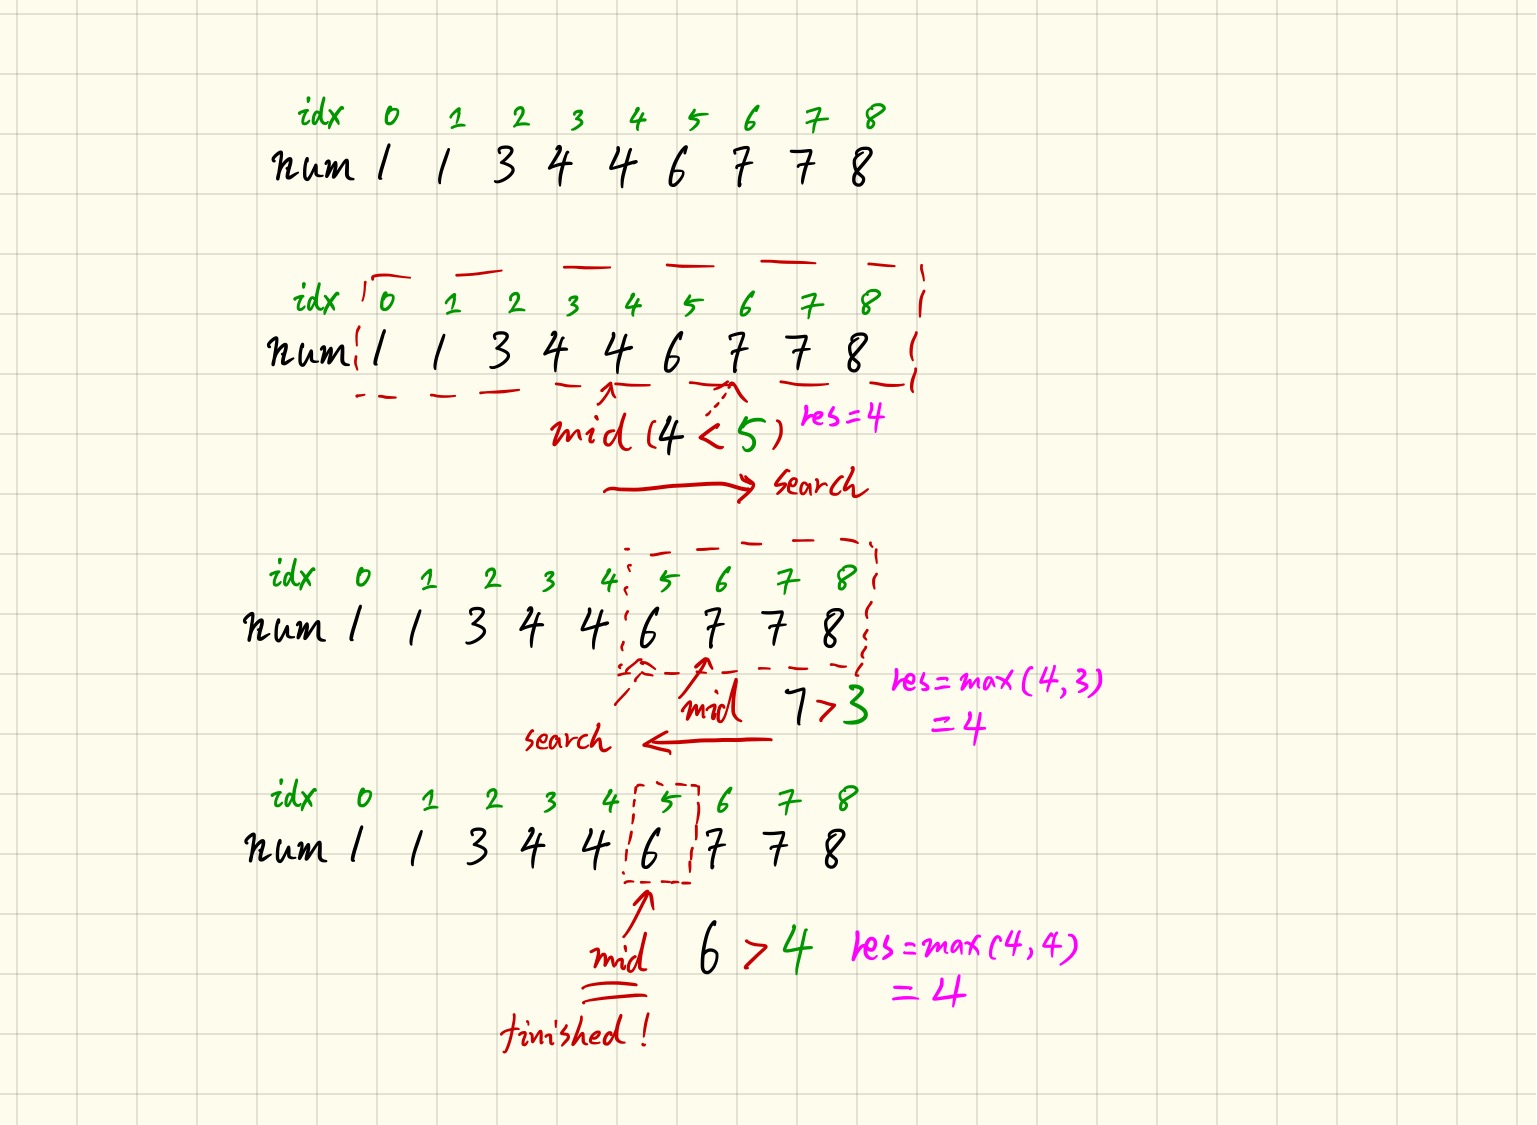 idx 0 1 2 3 4 5 6 7 8
num 1 1 3 4 4 6 7 7 8
idx 0 1 2 3 4 5 6 7 8
num 1 1 3 4 4 6 7 7 8
mid (4 < 5) res=4
search
idx 0 1 2 3 4 5 6 7 8
num 1 1 3 4 4 6 7 7 8
mid 7 > 3 res=max(4,3)
=4
search
idx 0 1 2 3 4 5 6 7 8
num 1 1 3 4 4 6 7 7 8
mid 6 > 4 res=max(4,4)
=4
finished!